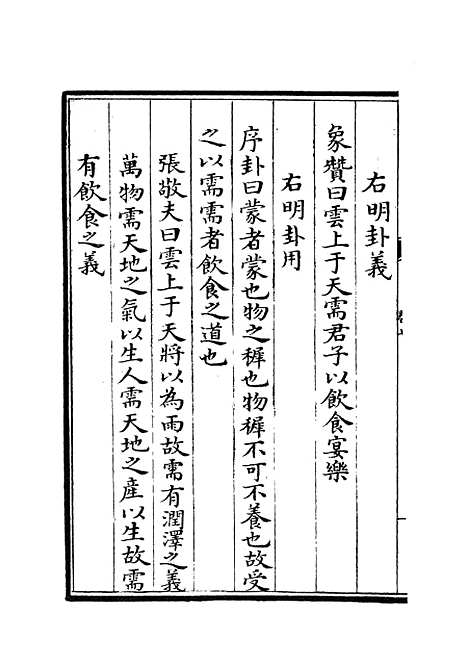 右明卦義
象贊曰雲上于天需君子以飲食宴樂
右明卦用
序卦曰蒙者蒙也物之穉也物穉不可不養也故受
之以需需者飲食之道也
張敬夫曰雲上于天將以為雨故需有潤澤之義
萬物需天地之氣以生人需天地之産以生故需
有飲食之義